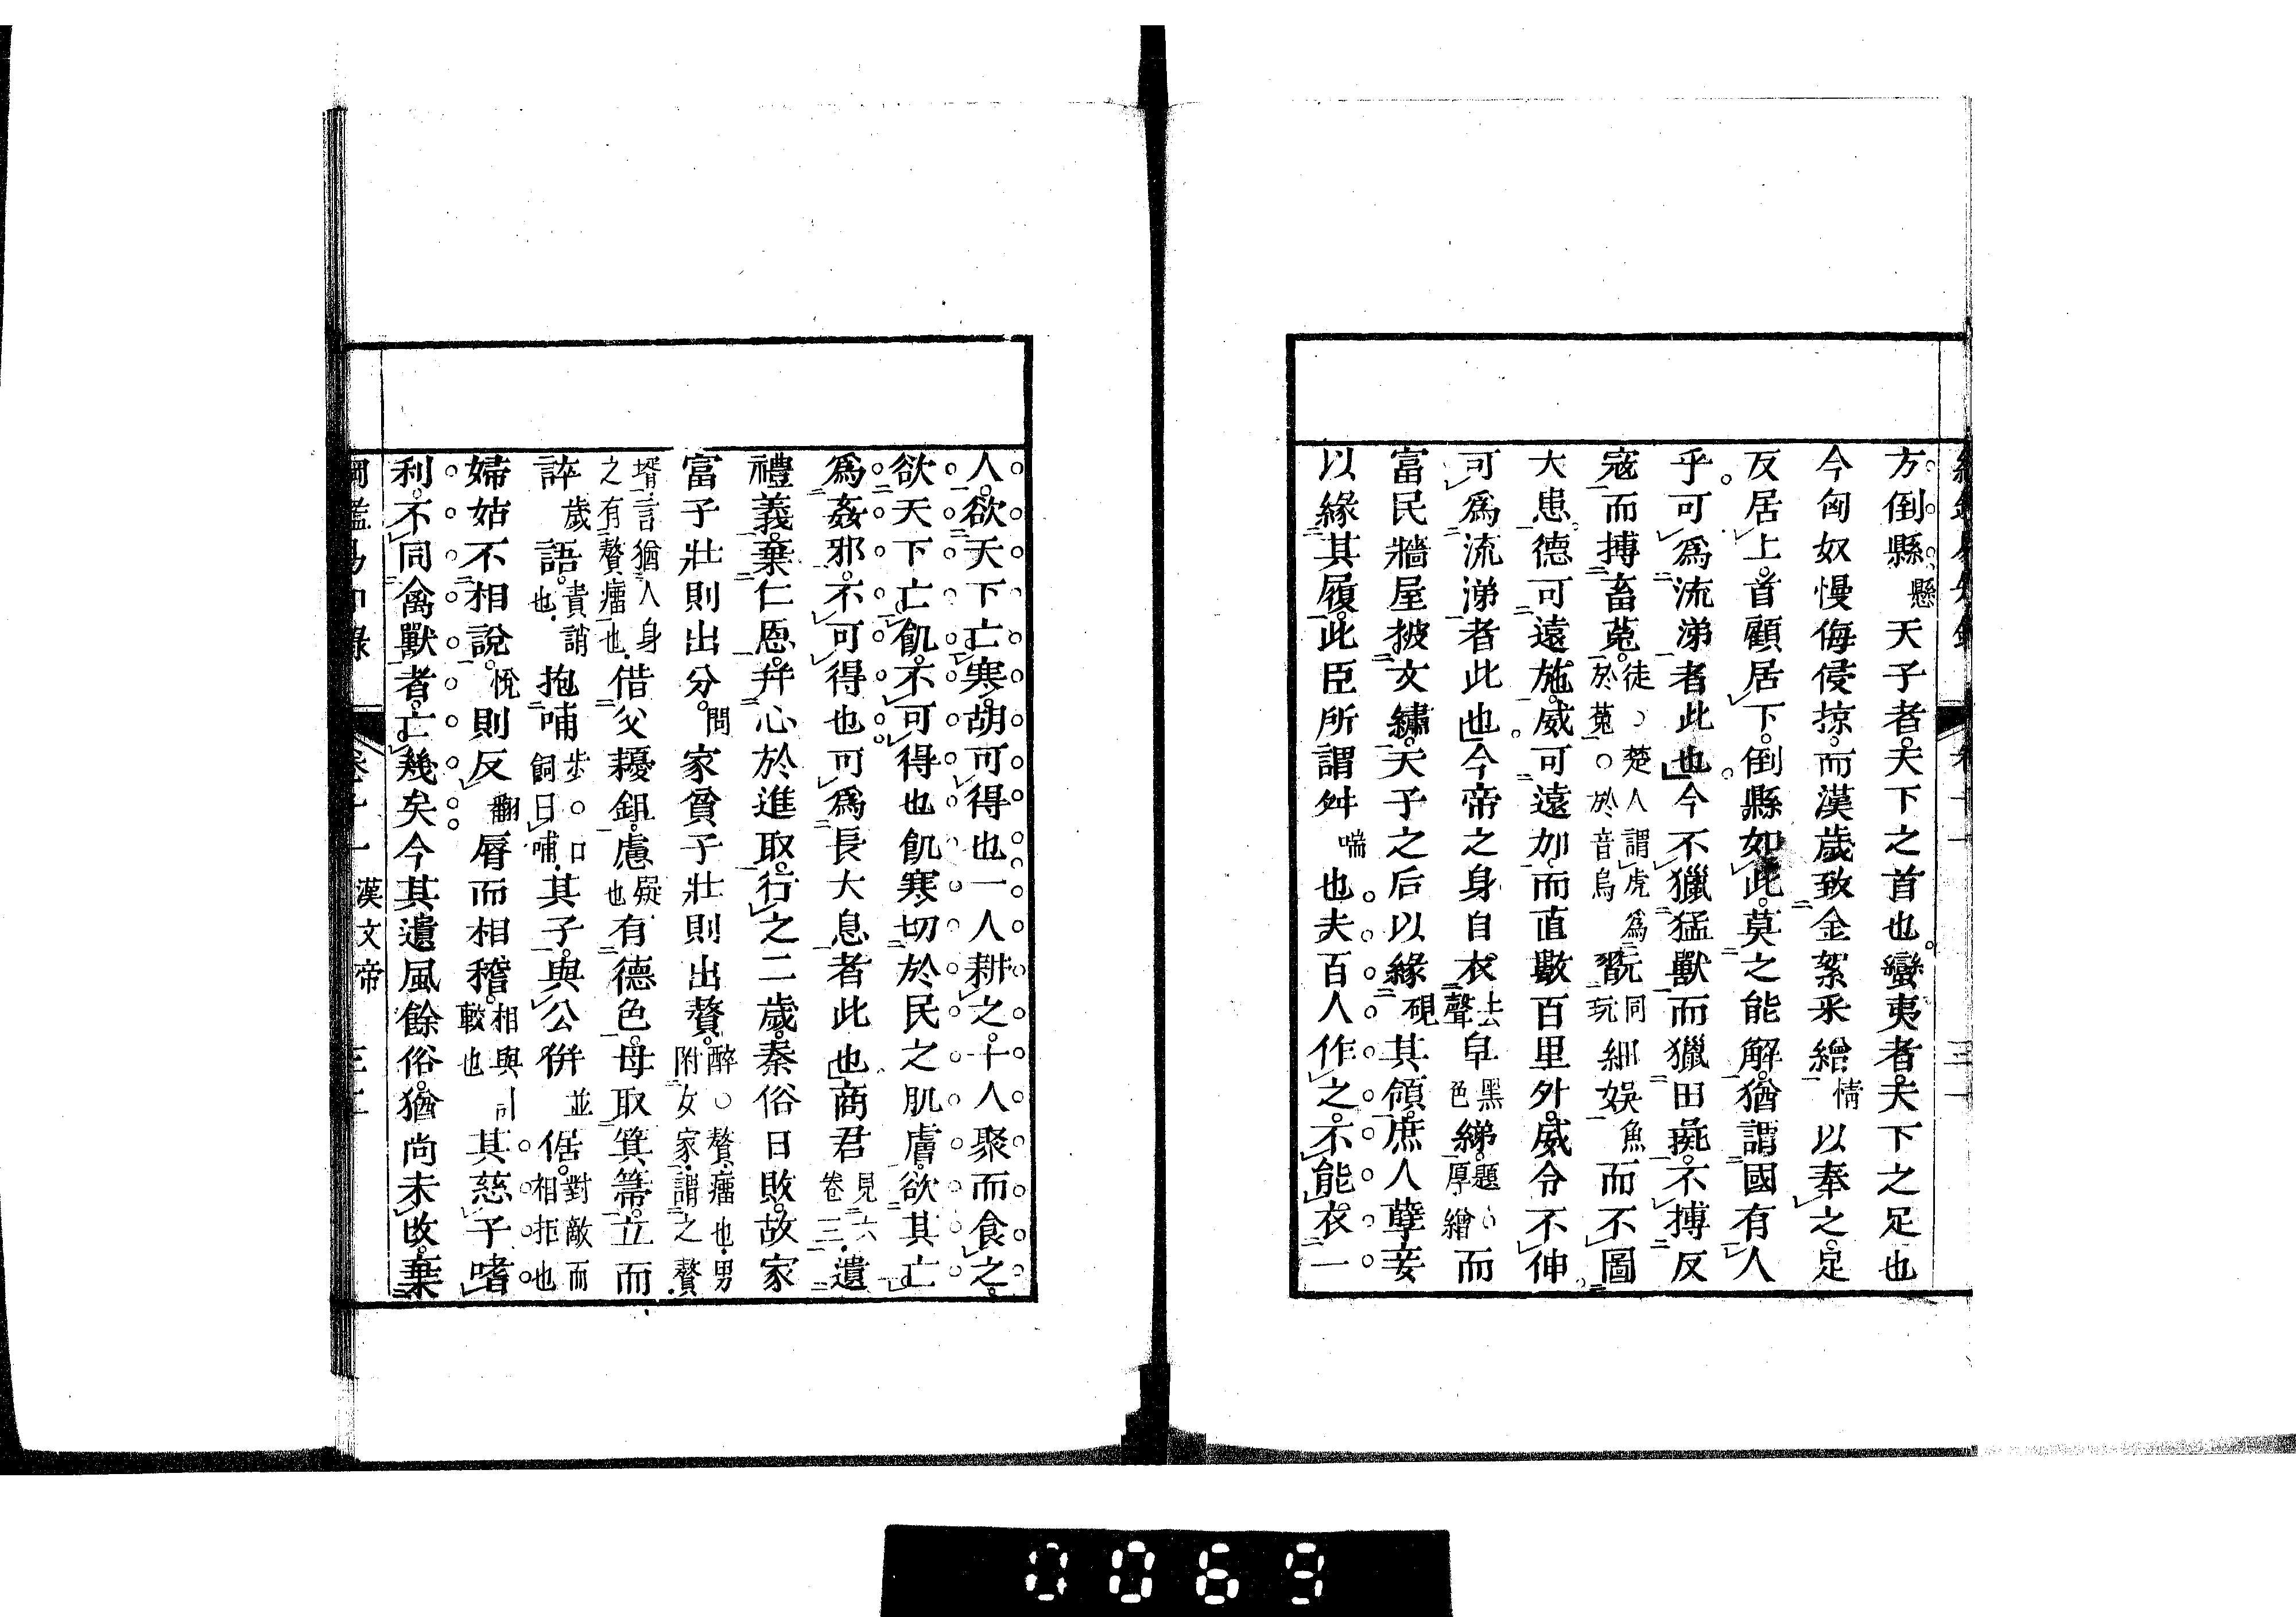 方倒縣懸天子者天下之首也蠻夷者天下之足也
今匈奴慢侮侵掠而漢歲致金絮采繒情以奉之足
反居上首顧居下倒縣如此莫之能解猶謂國有人
乎可爲流涕者此也今不獵猛獸而獵田彘不搏反
寇而搏畜菟徒〇楚人謂虎爲於菟〇於音烏翫同玩細娛魚而不圖
大患德可遠施威可遠加而直數百里外威令不伸
可爲流涕者此也今帝之身自衣去聲皁黑色綈題〇厚繒而
富民牆屋披文繡天子之后以緣硯其領庶人孽妾
以緣其履此臣所謂舛喘也夫百人作之不能衣一
人欲天下亡寒胡可得也一人耕之十人聚而食之
欲天下亡飢不可得也飢寒切於民之肌膚欲其亡
爲姦邪不可得也可爲長大息者此也商君見六卷三遺
禮義棄仁恩幷心於進取行之二歲秦俗日敗故家
富子壯則出分問家貧子壯則出贅醉〇贅瘤也男附女家謂之贅
壻言猶人身之有贅瘤也借父耰鉏慮疑也有德色母取箕箒立而
誶歲語責誚也抱哺步〇口飼曰哺其子與公倂並倨對敵而相拒也
婦姑不相說悅則反翻脣而相稽相與較也其慈子嗜
利不同禽獸者亡幾矣今其遺風餘俗猶尚未改棄
漢文帝
0069